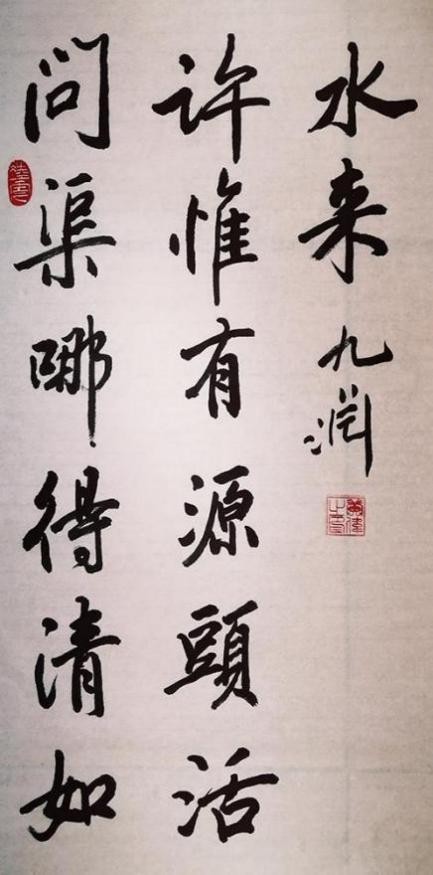 问渠哪得清如
许惟有源頭活
水来
九